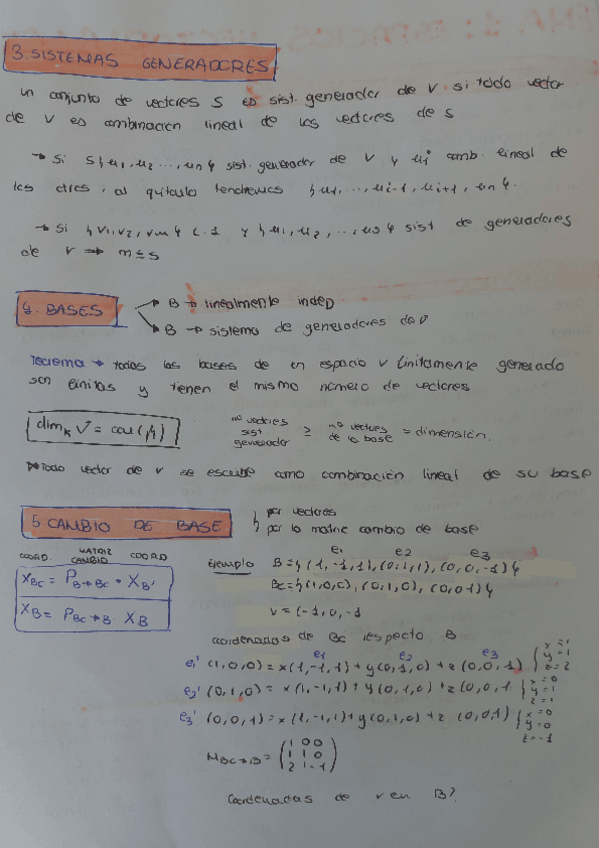 3. SISTEMAS GENERADORES
un conjunto de vectores S es sist. generador de V si todo vector
de V es combinación lineal de los vectores de S
→ Si S{u1, u2 ..., un} sist. generador de V y ui comb. lineal de
los otros, al quitarlo tendremos {u1, ..., ui-1, ui+1, un}.
→ Si {v1, v2, vm} L.I y {u1, u2, ..., us} sist de generadores
de V ⇒ m ≤ s
4. BASES
→ B → linealmente indeD
→ B → sistema de generadores de V
Teorema → todas las bases de un espacio V finitamente generado
son finitas y tienen el mismo número de vectores
dim_K V =
nº vectores sist generador ≥ nº vectores de la base = dimensión.
Todo vector de V se escribe como combinación lineal de su base
5 CAMBIO DE BASE
por vectores
por la matriz cambio de base
COORD. MATRIZ CAMBIO COORD
X_BC = P_B→BC · X_B'
X_B = P_BC→B · X_B
Ejemplo
e1 e2 e3
B = {(1, -1, 1), (0, 1, 1), (0, 0, -1)}
BC = {(1,0,0), (0,1,0), (0,0,1)}
v = (-1, 0, -1
coordenadas de BC respecto B
e1 e2 e3
e1' (1,0,0) = x(1,-1,1) + y(0,1,0) + z(0,0,1) { x = 1 y = 1 z = 2
e2' (0,1,0) = x(1,-1,1) + y(0,1,0) + z(0,0,1 { x = 0 y = 1 z = 1
e3' (0,0,1) = x(1,-1,1) + y(0,1,0) + z(0,0,1) { x = 0 y = 0 z = -1
M_BC→B = ( 1 0 0
1 1 0
2 1 -1 )
Coordenadas de v en B?